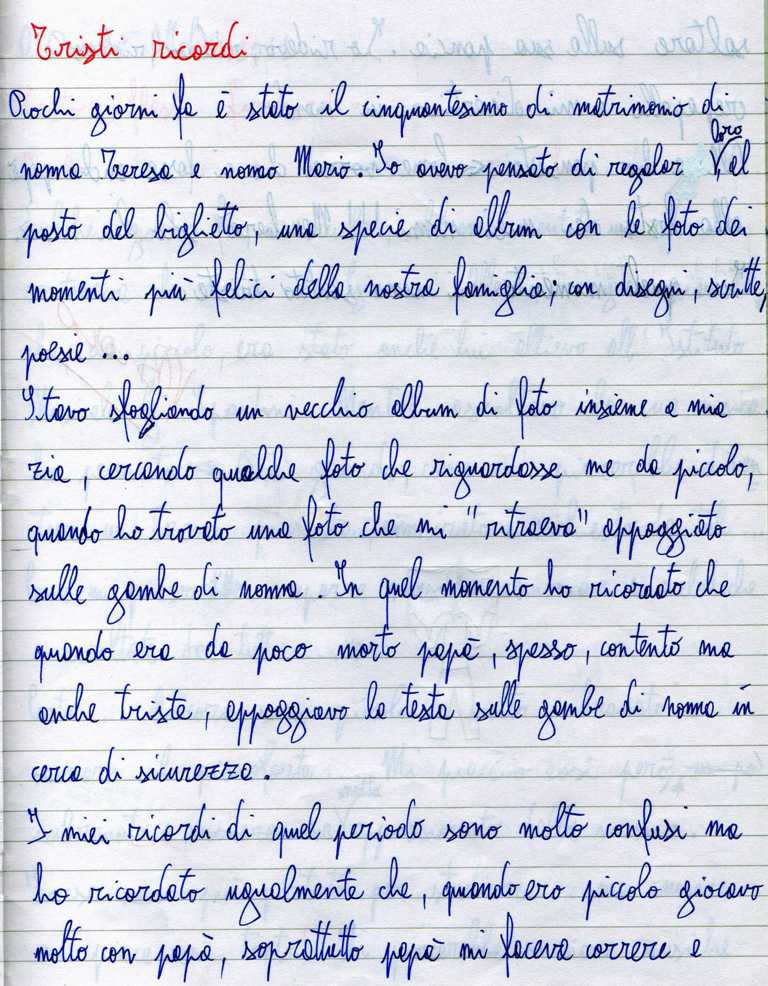 Tristi ricordi
Pochi giorni fa è stato il cinquantesimo di matrimonio di
loro
nonna Teresa e nonno Mario. Io avevo pensato di regalar al
posto del biglietto, una specie di album con le foto dei
momenti più felici della nostra famiglia; con disegni, scritte,
poesie ...
Stavo sfogliando un vecchio album di foto insieme a mia
zia, cercando qualche foto che riguardasse me da piccolo,
quando ho trovato una foto che mi "ritraeva" appoggiato
sulle gambe di nonna. In quel momento ho ricordato che
quando era da poco morto papà, spesso, contento ma
anche triste, appoggiavo la testa sulle gambe di nonna in
cerca di sicurezza.
I miei ricordi di quel periodo sono molto confusi ma
ho ricordato ugualmente che, quando ero piccolo giocavo
molto con papà, soprattutto papà mi faceva correre e